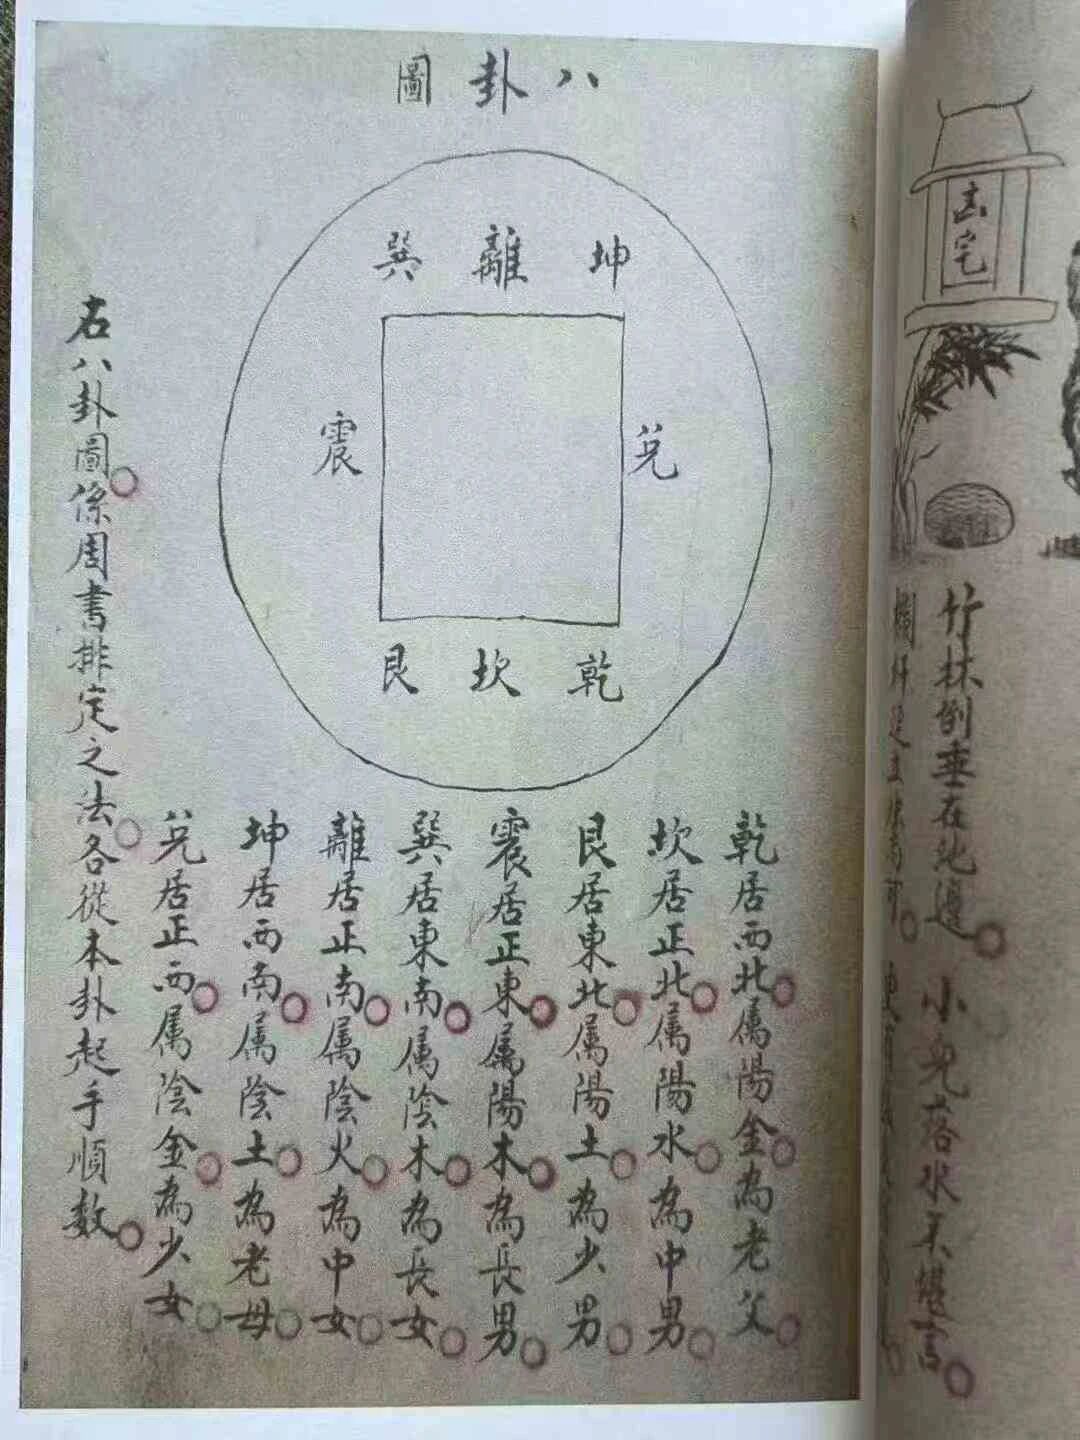 八卦圖
坤
離
巽
兌
震
乾
坎
艮
乾居西北属陽金為老父
坎居正北属陽水為中男
艮居東北属陽土為少男
震居正東属陽木為長男
巽居東南属陰木為長女
離居正南属陰火為中女
坤居西南属陰土為老母
兌居正西属陰金為少女
右八卦圖係周書排定之法各從本卦起手順数
凶宅
竹林倒垂在池邊
小兒落水不堪言